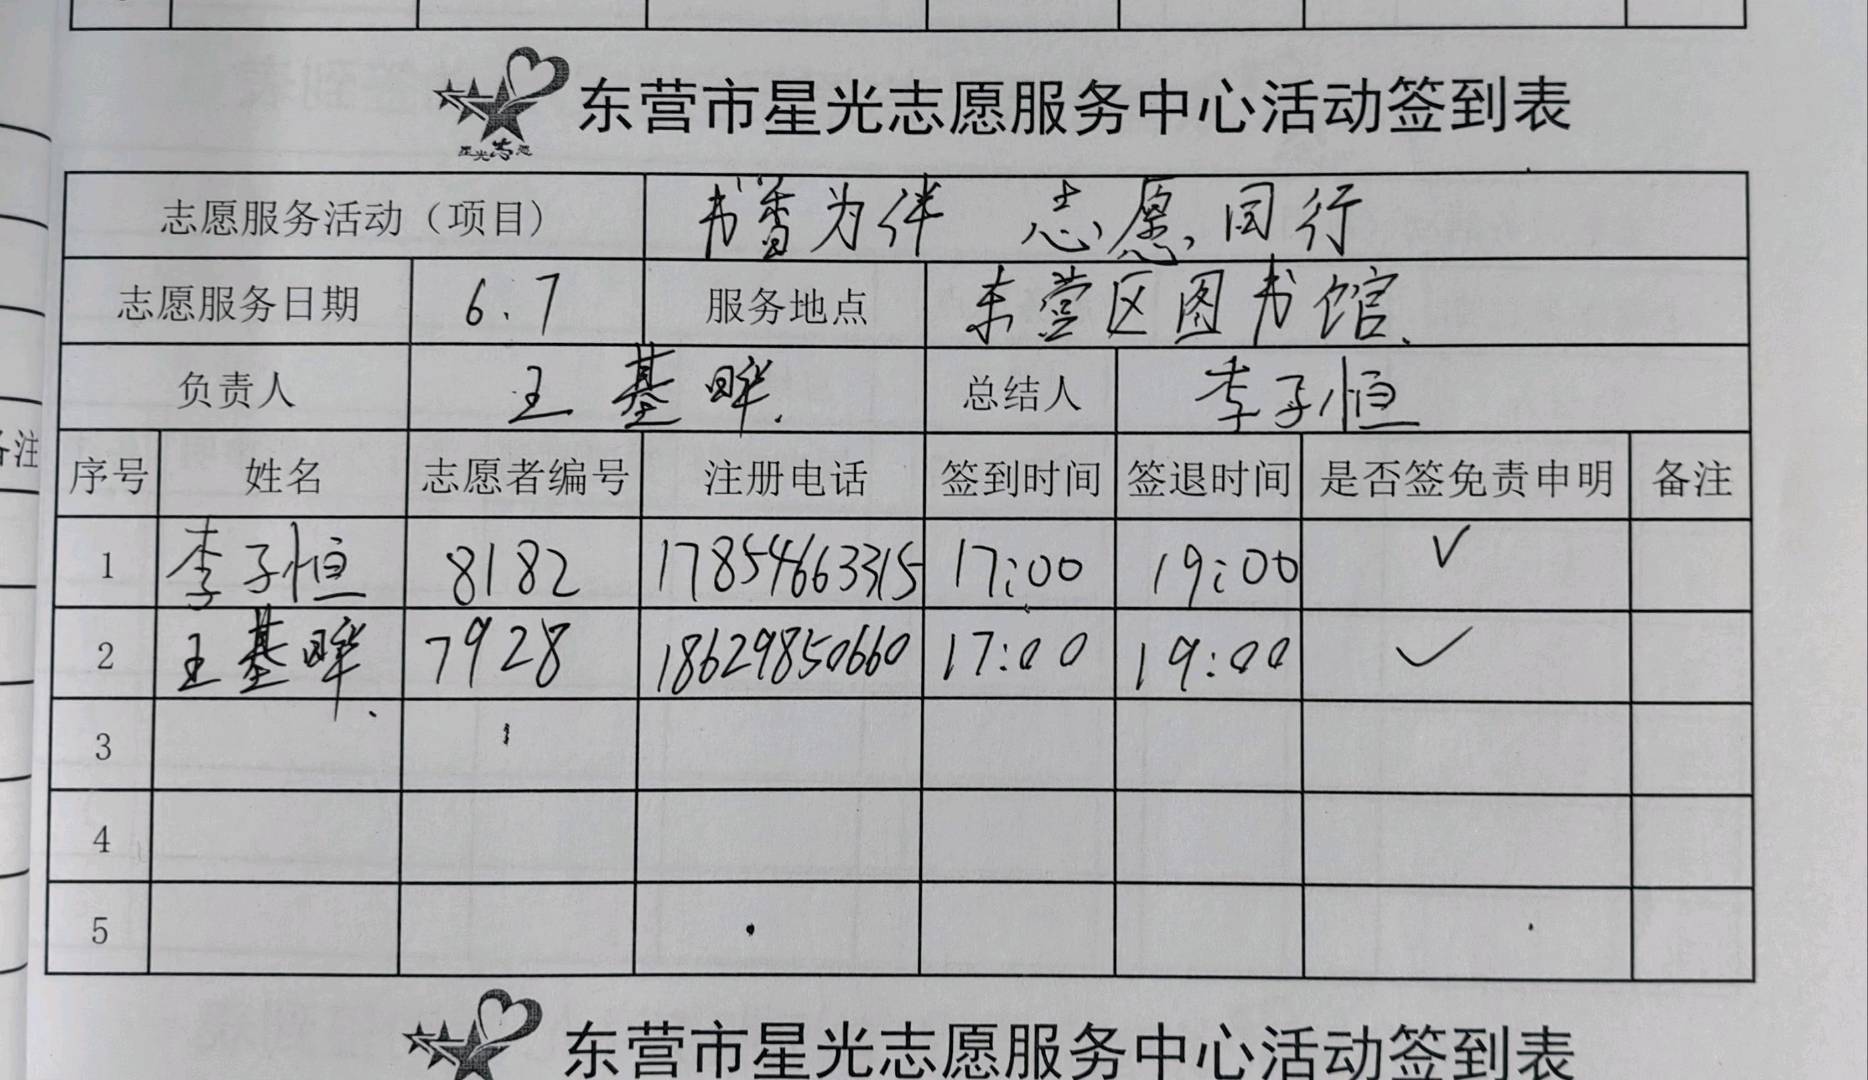 东营市星光志愿服务中心活动签到表
星光志愿
志愿服务活动（项目） 书香为伴 志愿同行
志愿服务日期 6.7 服务地点 东营区图书馆.
负责人 王基晔. 总结人 李子恒
备注
序号 姓名 志愿者编号 注册电话 签到时间 签退时间 是否签免责申明 备注
1 李子恒 8182 17854663315 17:00 19:00 √
2 王基晔. 7928 18629850660 17:00 19:00 √
3
4
5
东营市星光志愿服务中心活动签到表